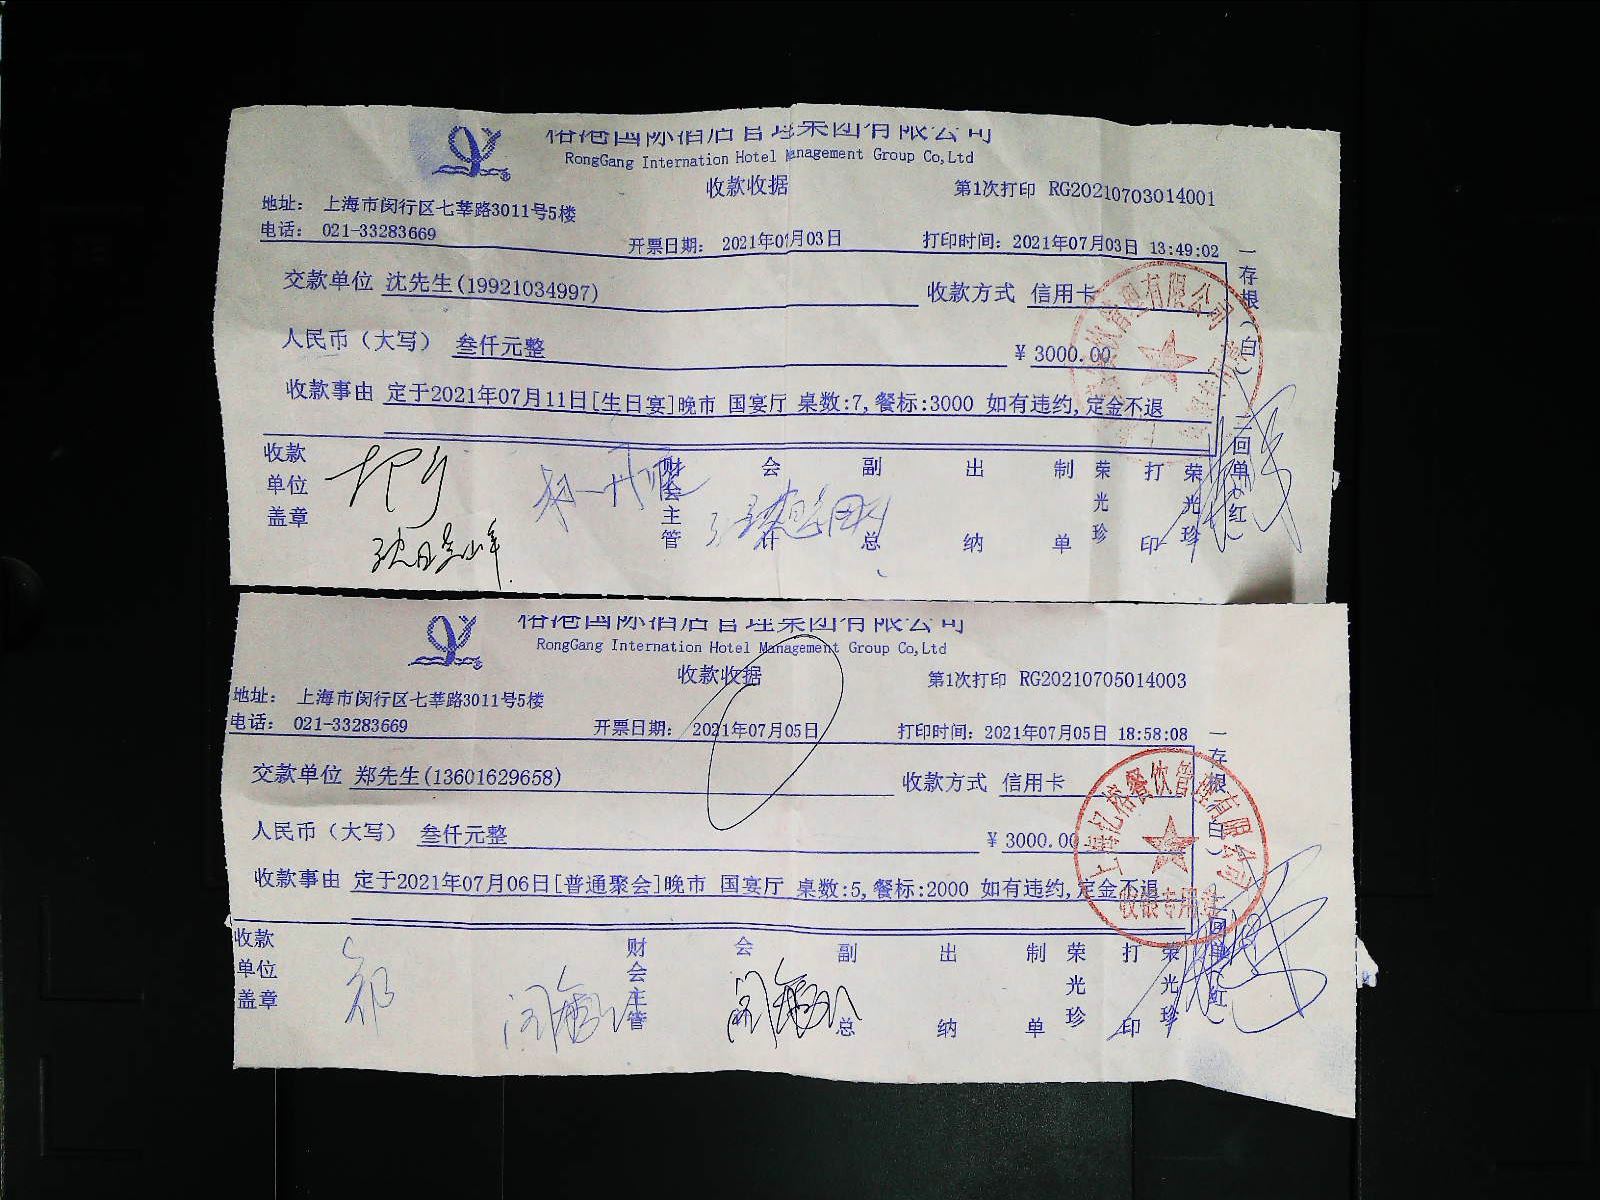 裕港国际酒店管理集团有限公司
RongGang Internation Hotel Management Group Co,Ltd
收款收据
第1次打印 RG20210703014001
地址: 上海市闵行区七莘路3011号5楼
电话: 021-33283669
开票日期: 2021年07月03日
打印时间: 2021年07月03日 13:49:02
交款单位 沈先生(19921034997)
收款方式 信用卡
人民币（大写） 叁仟元整
¥ 3000.00
收款事由 定于2021年07月11日[生日宴]晚市 国宴厅 桌数:7,餐标:3000 如有违约,定金不退
一存根(白) 二回单(红)
收款单位盖章
财会主管 会计 副总 出纳 制单 荣光珍 打印 荣光珍
裕港国际酒店管理集团有限公司
RongGang Internation Hotel Management Group Co,Ltd
收款收据
第1次打印 RG20210705014003
地址: 上海市闵行区七莘路3011号5楼
电话: 021-33283669
开票日期: 2021年07月05日
打印时间: 2021年07月05日 18:58:08
交款单位 郑先生(13601629658)
收款方式 信用卡
人民币（大写） 叁仟元整
¥ 3000.00
收款事由 定于2021年07月06日[普通聚会]晚市 国宴厅 桌数:5,餐标:2000 如有违约,定金不退
上海忆裕餐饮管理有限公司
收银专用章
一存根(白) 二回单(红)
收款单位盖章
财会主管 会 副总 出纳 制单 荣光珍 打印 荣光珍